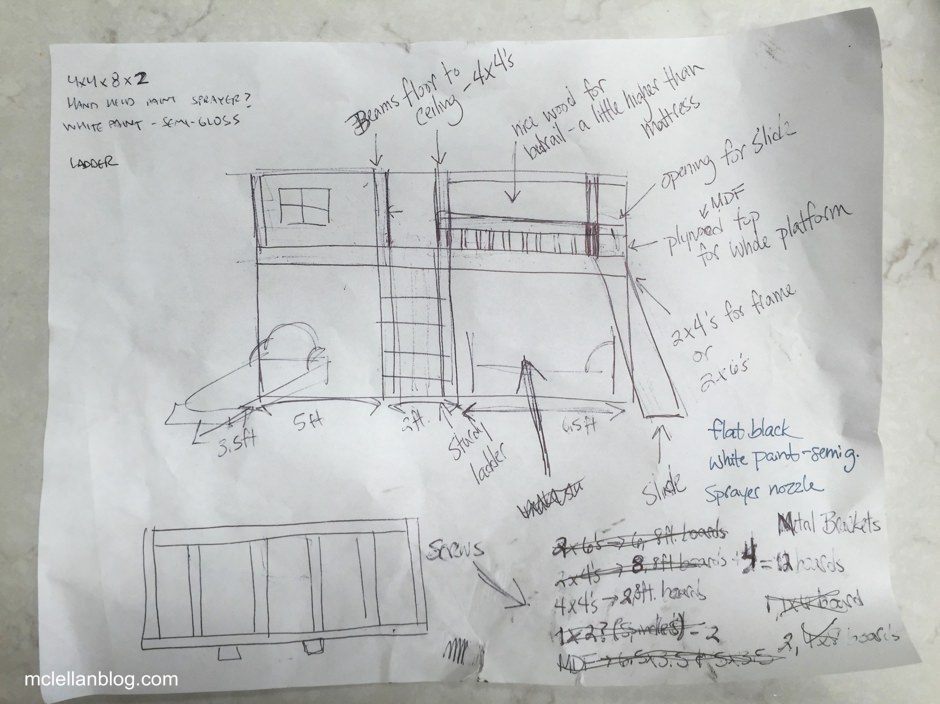 4x4x8x2
HAND HELD PAINT SPRAYER?
WHITE PAINT - SEMI-GLOSS
LADDER
Beams floor to
ceiling - 4x4's
nice wood for
- a little higher than
mattress
opening for Slide
MDF
plywood top
for whole platform
2x4's for frame
or
2x6's
3.5ft
5ft
2ft.
Sturdy
ladder
6.5ft
Slide
flat black
White paint-semi g.
Sprayer nozzle
Screws
2x6's → 6, 8ft. boards
2x4's → 8, 8ft boards + 4 = 12 boards
4x4's → 2, 8ft. boards
1x2? (Spindles) - 2
MDF → 6.5x3.5 + 5x3.5
Metal Brackets
board
2, boards
mclellanblog.com